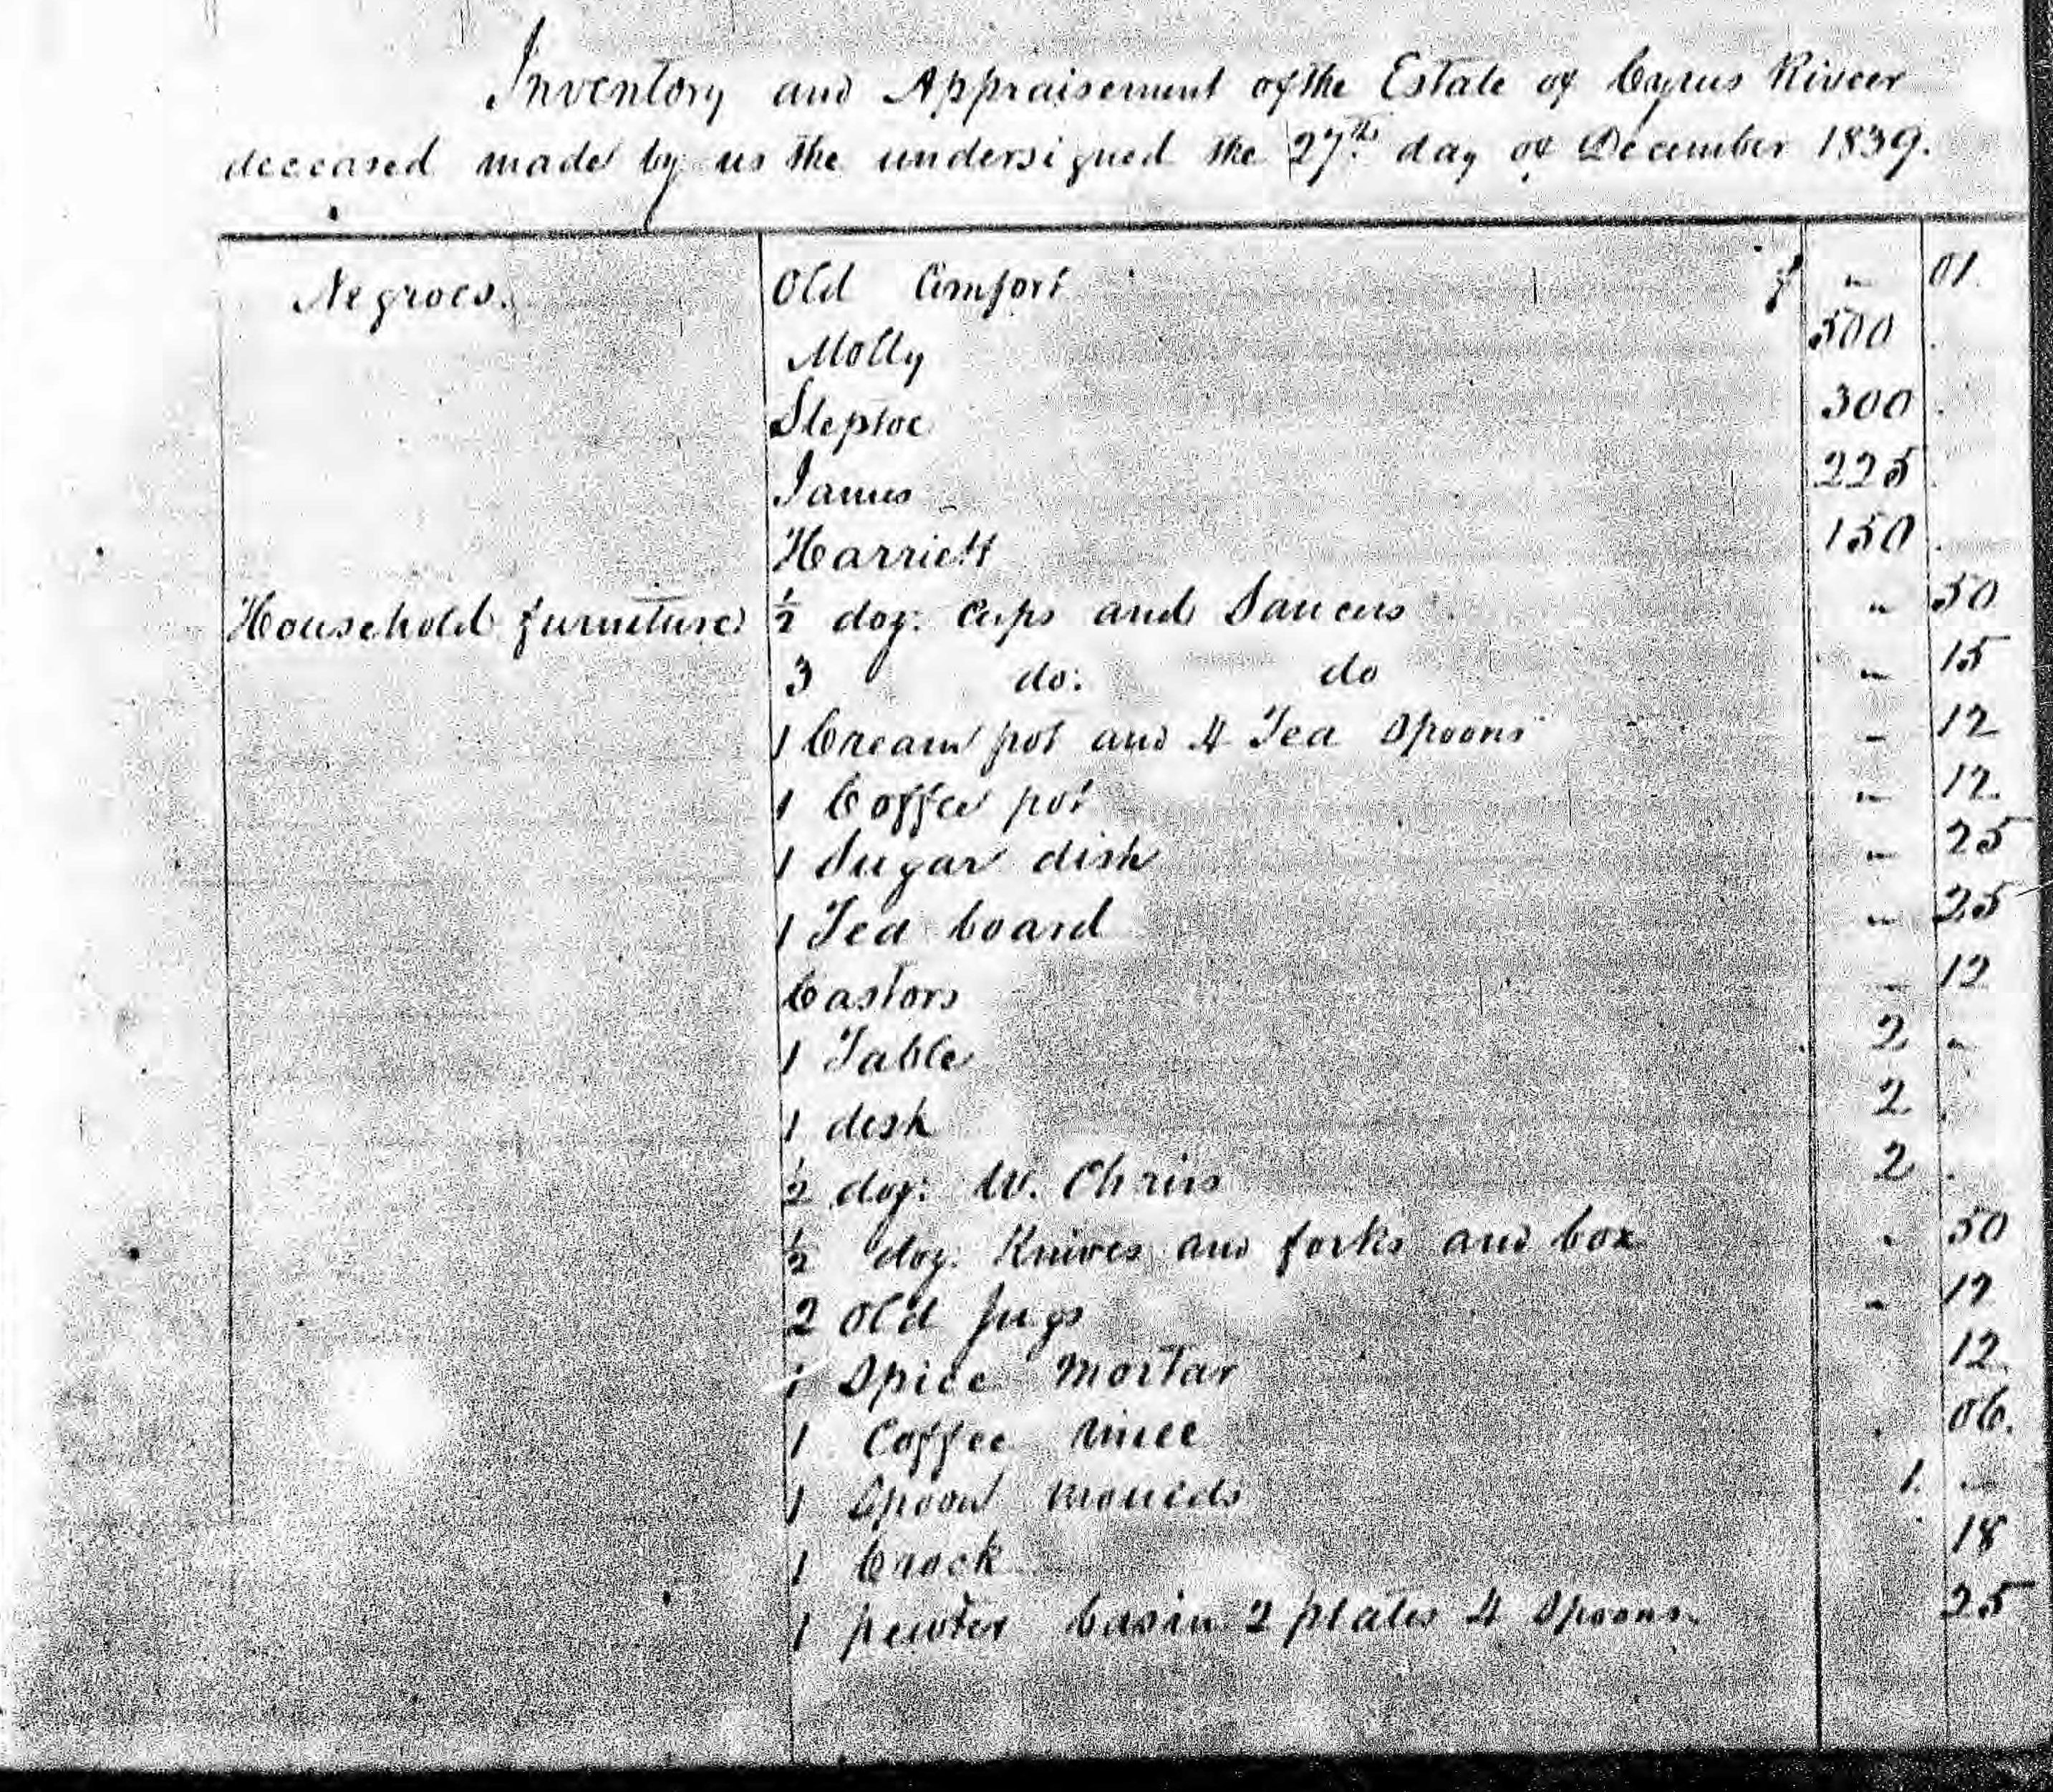 Inventory and Appraisement of the Estate of Cyrus
deceased made by us the undersigned the 27th day of December 1839.
Negroes. Old Comfort $ " 01.
Molly 500
Steptoe 300
James 225
Harriett 150
Household furniture ½ doz: Cups and Saucers " 50
3 do: do " 15
1 Cream pot and 4 Tea Spoons " 12
1 Coffee pot " 12.
1 Sugar dish " 25
1 Tea board " 25
Castors " 12
1 Table 2 "
1 desk 2
½ doz: W. Chairs 2
½ doz. Knives and forks and box 50
2 old jugs " 12
1 Spice Mortar 12
1 Coffee 06.
1 Spoon moulds 1. "
1 Crock 18
1 pewter basin 2 plates 4 Spoons. 25